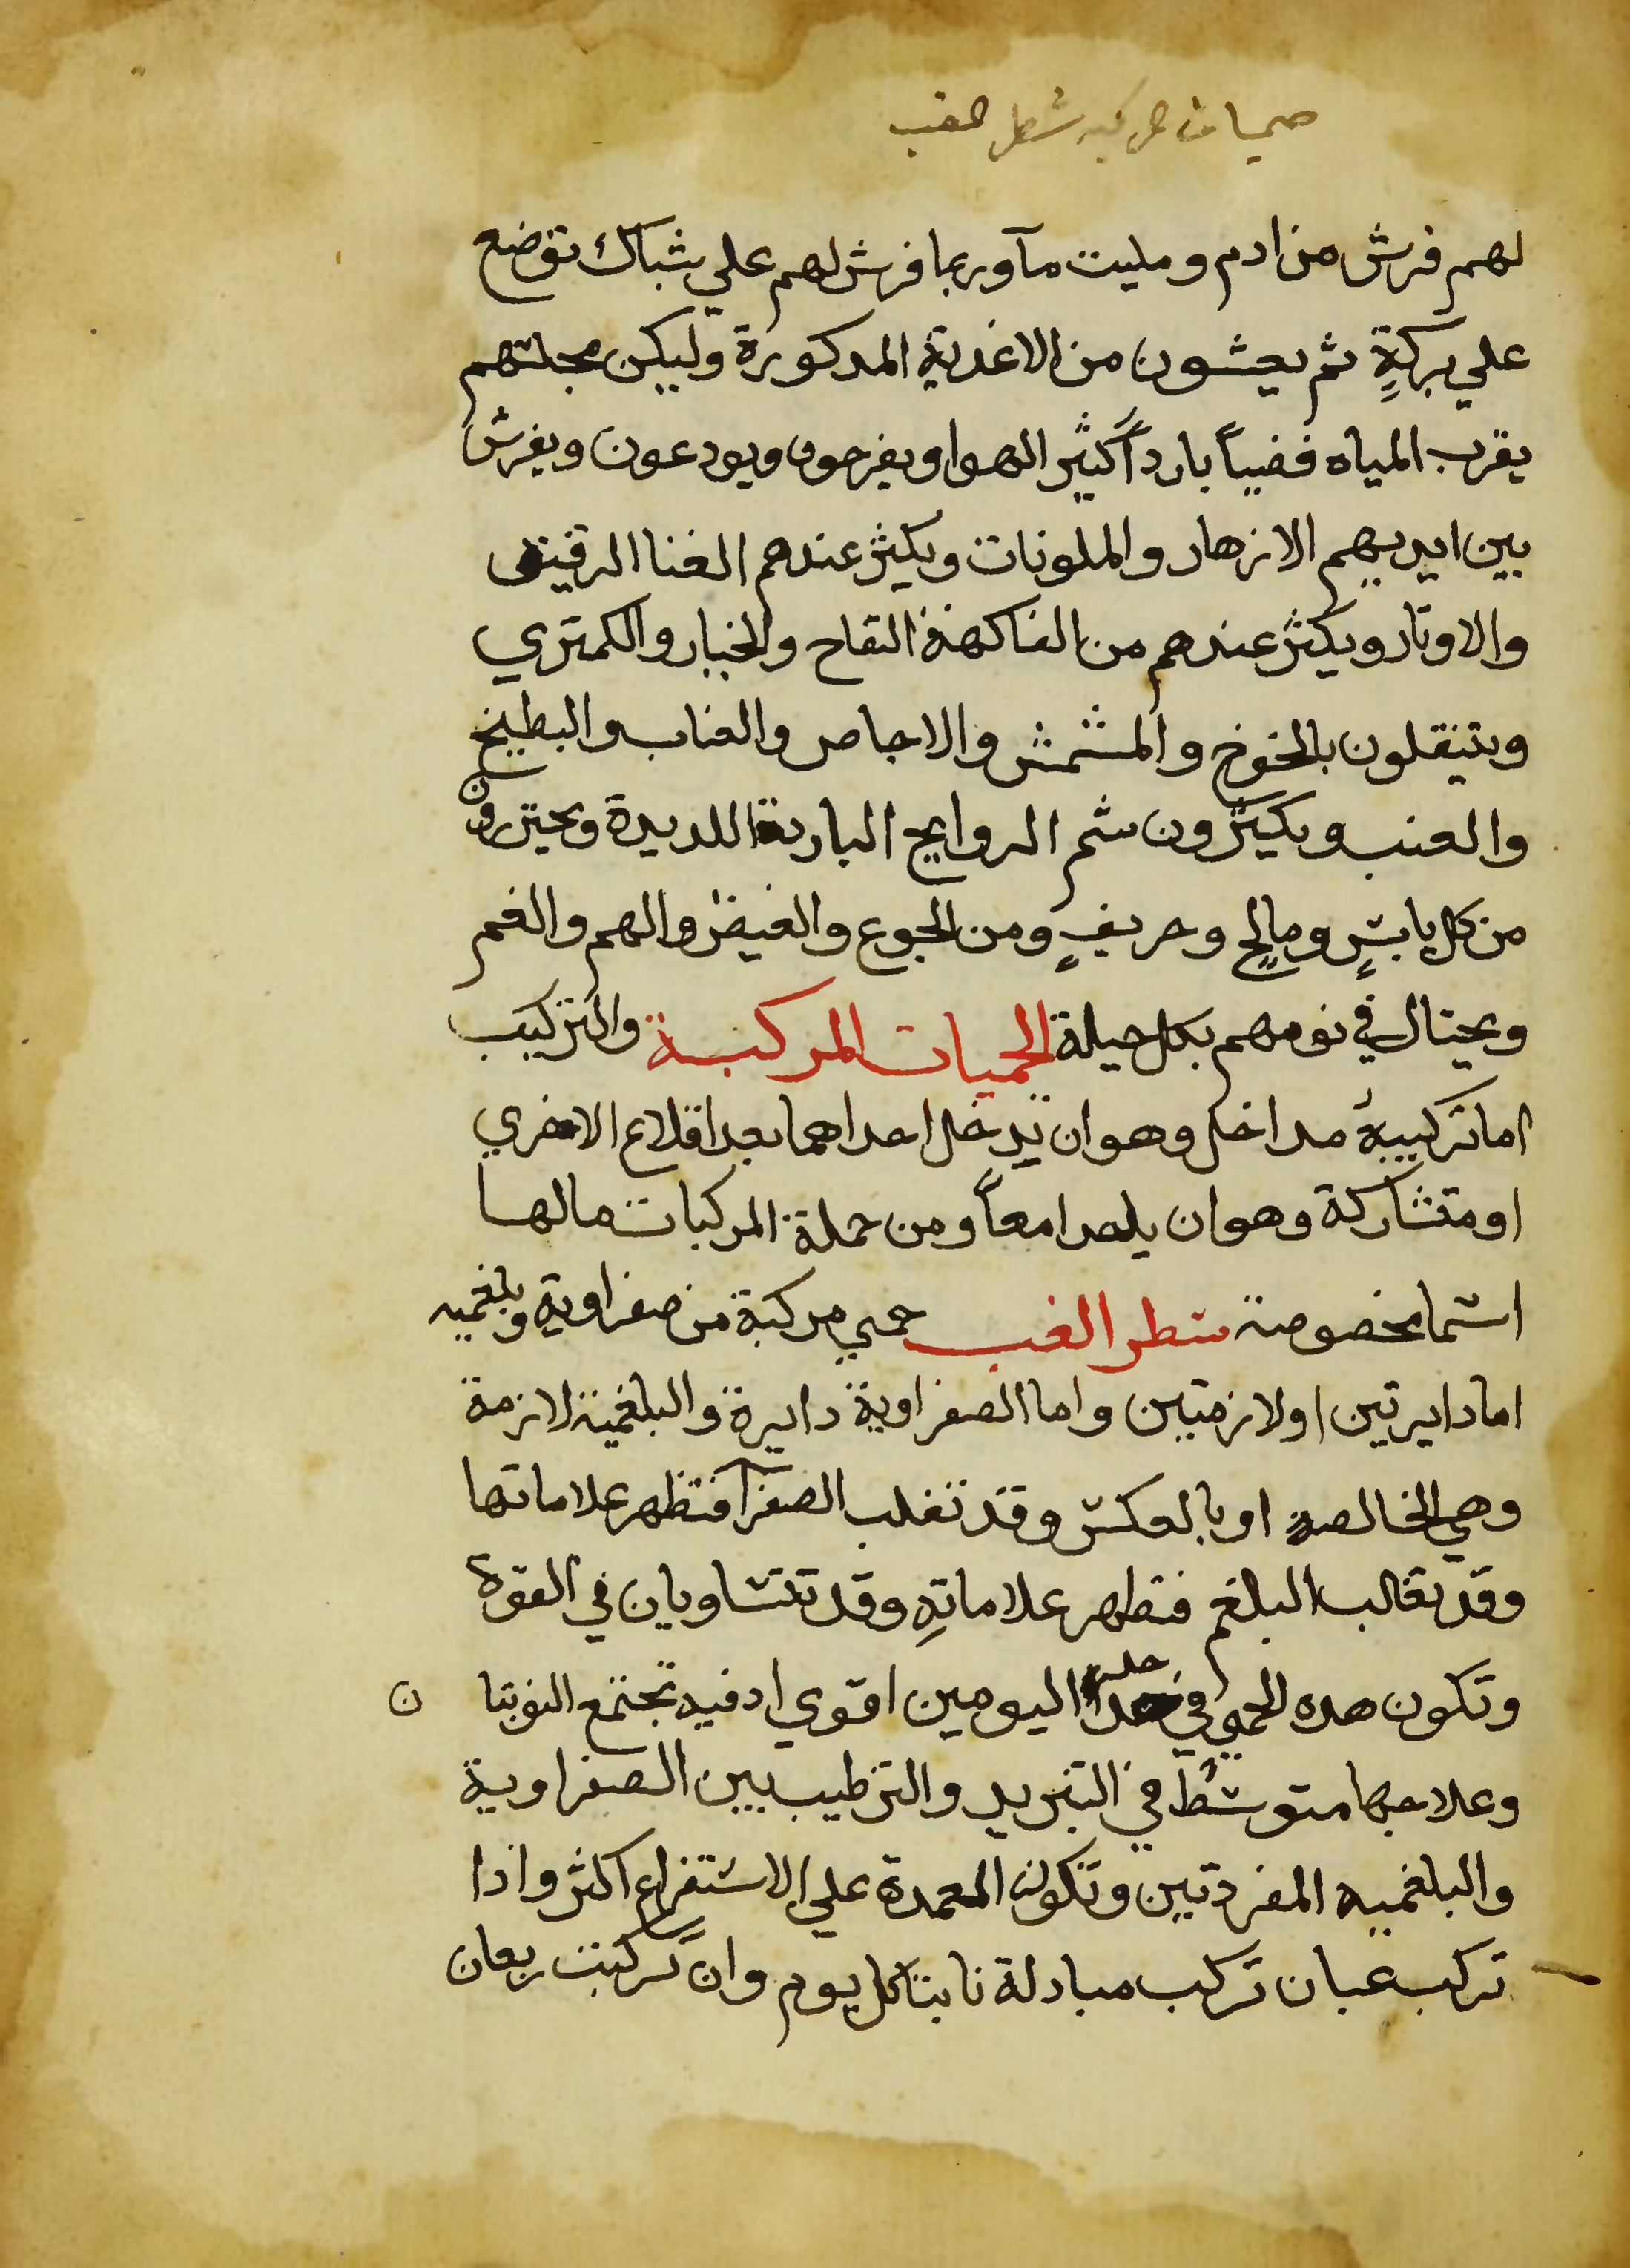 حميات مركبه شطر الغب
لهم فرش من ادم ومليت مآ وربما فرش لهم علي شباك توضع
علي بركةٍ ثم يعشون من الاغدية المدكورة وليكن مجلسهم
بقرب المياه فضيياً بارداً كثير الهوا ويفرحون ويودعون ويفرش
بين ايديهم الازهار والملونات ويكثر عندهم الغنا الرقيق
والاوتار ويكثر عندهم من الفاكهة التفاح والخيار والكمتري
ويتنقلون بالخوخ والمشمش والاجاص والعناب والبطيخ
والعنب ويكثرون شم الروايح الباردة اللديدة ويحترزون
من كل يابسٍ ومالحٍ وحريفٍ ومن الجوع والغيض والهم والغم
ويحتال في نومهم بكل حيلة الحميات المركبة والتركيب
اما تركيبة مداخل وهو ان تدخل احداهما بعد اقلاع الاخري
او متشاركة وهو ان ياخدا معاً ومن جملة المركبات مالها
اسما مخصوصة شطر الغب حمي مركبة من صفراوية وبلغميه
اما دايرتين او لازمتين واما الصفراوية دايرة والبلغمية لازمة
وهي الخالصة او بالعكس وقد تغلب الصفرآ فتظهر علاماتها
وقد تغالب البلغم فتظهر علاماتهِ وقد تتساويان في القوة
وتكون هده الحمي في احد اليومين اقوي اد فيه تجتمع النوبتا ن
وعلاجها متوسط في التبريد والترطيب بين الصفراوية
والبلغميه المفردتين وتكون المعمدة علي الاستفراغ اكثر واذا
تركب غبان تركب مبادلة نابتا كل يوم وان تركبت ربعان